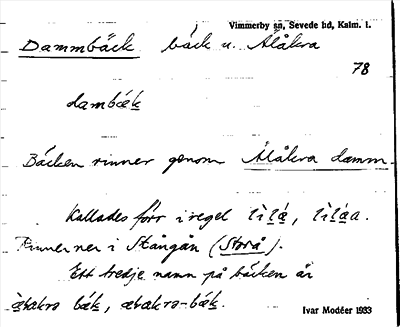 Vimmerby sn, Sevede hd, Kalm. l.
Dammbäck bäck u. Ålåkra
78
dambæk
Bäcken rinner genom Ålåkra damm.
Kallades förr i regel
Rinner ner i Stångån (Storå).
Ett tredje namn på bäcken är
bæk, -bæk.
Ivar Modéer 1933